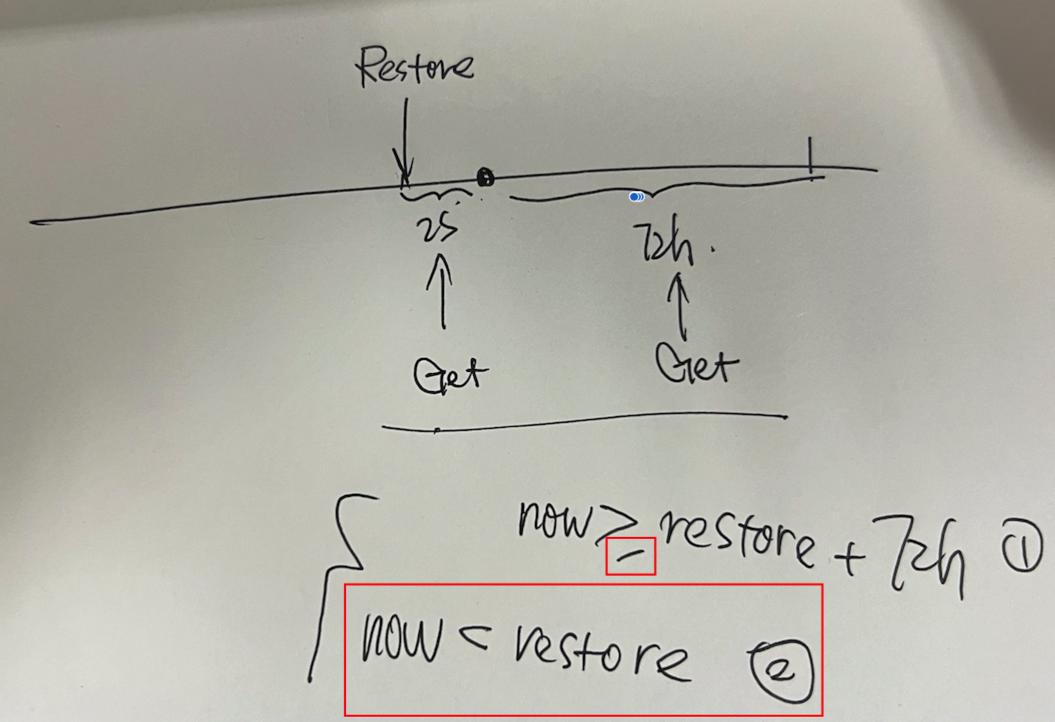 Restore
2s
72h.
Get
Get
now ≥ restore + 72h ①
now < restore ②